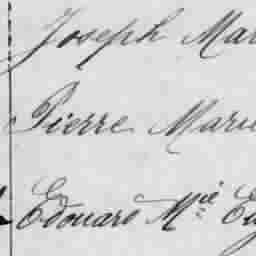 Joseph Mar
Pierre Marie
Edouard Mie Eu